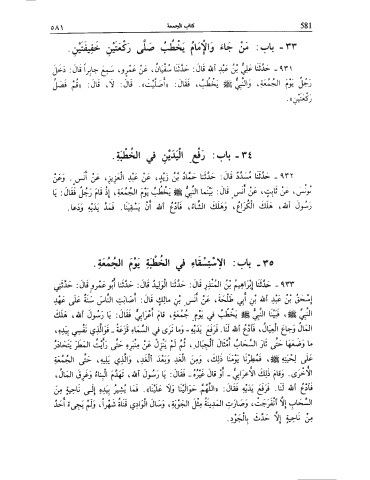 ٥٨١ كتاب الجمعة 581
٣٣ - باب: مَنْ جَاءَ وَالإِمَامُ يَخْطُبُ صَلَّى رَكْعَتَيْنِ خَفِيفَتَيْنِ.
٩٣١ - حَدَّثَنَا عَلِيُّ بْنُ عَبْدِ اللهِ قَالَ: حَدَّثَنَا سُفْيَانُ، عَنْ عَمْرٍو، سَمِعَ جَابِراً قَالَ: دَخَلَ
رَجُلٌ يَوْمَ الْجُمُعَةِ، وَالنَّبِيُّ ﷺ يَخْطُبُ، فَقَالَ: «أَصَلَّيْتَ». قَالَ: لَا، قَالَ: «قُمْ فَصَلِّ
رَكْعَتَيْنِ».
٣٤ - باب: رَفْعِ الْيَدَيْنِ فِي الْخُطْبَةِ.
٩٣٢ - حَدَّثَنَا مُسَدَّدٌ قَالَ: حَدَّثَنَا حَمَّادُ بْنُ زَيْدٍ، عَنْ عَبْدِ الْعَزِيزِ، عَنْ أَنَسٍ. وَعَنْ
يُونُسَ، عَنْ ثَابِتٍ، عَنْ أَنَسٍ قَالَ: بَيْنَمَا النَّبِيُّ ﷺ يَخْطُبُ يَوْمَ الْجُمُعَةِ، إِذْ قَامَ رَجُلٌ فَقَالَ: يَا
رَسُولَ اللهِ، هَلَكَ الْكُرَاعُ، وَهَلَكَ الشَّاءُ، فَادْعُ اللهَ أَنْ يَسْقِيَنَا. فَمَدَّ يَدَيْهِ وَدَعَا.
٣٥ - باب: الاِسْتِسْقَاءِ فِي الْخُطْبَةِ يَوْمَ الْجُمُعَةِ.
٩٣٣ - حَدَّثَنَا إِبْرَاهِيمُ بْنُ الْمُنْذِرِ قَالَ: حَدَّثَنَا الْوَلِيدُ قَالَ: حَدَّثَنَا أَبُو عَمْرٍو قَالَ: حَدَّثَنِي
إِسْحَقُ بْنُ عَبْدِ اللهِ بْنِ أَبِي طَلْحَةَ، عَنْ أَنَسِ بْنِ مَالِكٍ قَالَ: أَصَابَتِ النَّاسَ سَنَةٌ عَلَى عَهْدِ
النَّبِيِّ ﷺ، فَبَيْنَا النَّبِيُّ ﷺ يَخْطُبُ فِي يَوْمِ جُمُعَةٍ، قَامَ أَعْرَابِيٌّ فَقَالَ: يَا رَسُولَ اللهِ، هَلَكَ
الْمَالُ وَجَاعَ الْعِيَالُ، فَادْعُ اللهَ لَنَا. فَرَفَعَ يَدَيْهِ، وَمَا نَرَى فِي السَّمَاءِ قَزَعَةً، فَوَالَّذِي نَفْسِي بِيَدِهِ،
مَا وَضَعَهَا حَتَّى ثَارَ السَّحَابُ أَمْثَالَ الْجِبَالِ، ثُمَّ لَمْ يَنْزِلْ عَنْ مِنْبَرِهِ حَتَّى رَأَيْتُ الْمَطَرَ يَتَحَادَرُ
عَلَى لِحْيَتِهِ ﷺ، فَمُطِرْنَا يَوْمَنَا ذَلِكَ، وَمِنَ الْغَدِ وَبَعْدَ الْغَدِ، وَالَّذِي يَلِيهِ، حَتَّى الْجُمُعَةِ
الأُخْرَى. وَقَامَ ذَلِكَ الأَعْرَابِيُّ - أَوْ قَالَ غَيْرُهُ - فَقَالَ: يَا رَسُولَ اللهِ، تَهَدَّمَ الْبِنَاءُ وَغَرِقَ الْمَالُ،
فَادْعُ اللهَ لَنَا. فَرَفَعَ يَدَيْهِ فَقَالَ: «اللَّهُمَّ حَوَالَيْنَا وَلَا عَلَيْنَا». فَمَا يُشِيرُ بِيَدِهِ إِلَى نَاحِيَةٍ مِنَ
السَّحَابِ إِلَّا انْفَرَجَتْ، وَصَارَتِ الْمَدِينَةُ مِثْلَ الْجَوْبَةِ، وَسَالَ الْوَادِي قَنَاةُ شَهْراً، وَلَمْ يَجِيءْ أَحَدٌ
مِنْ نَاحِيَةٍ إِلَّا حَدَّثَ بِالْجَوْدِ.